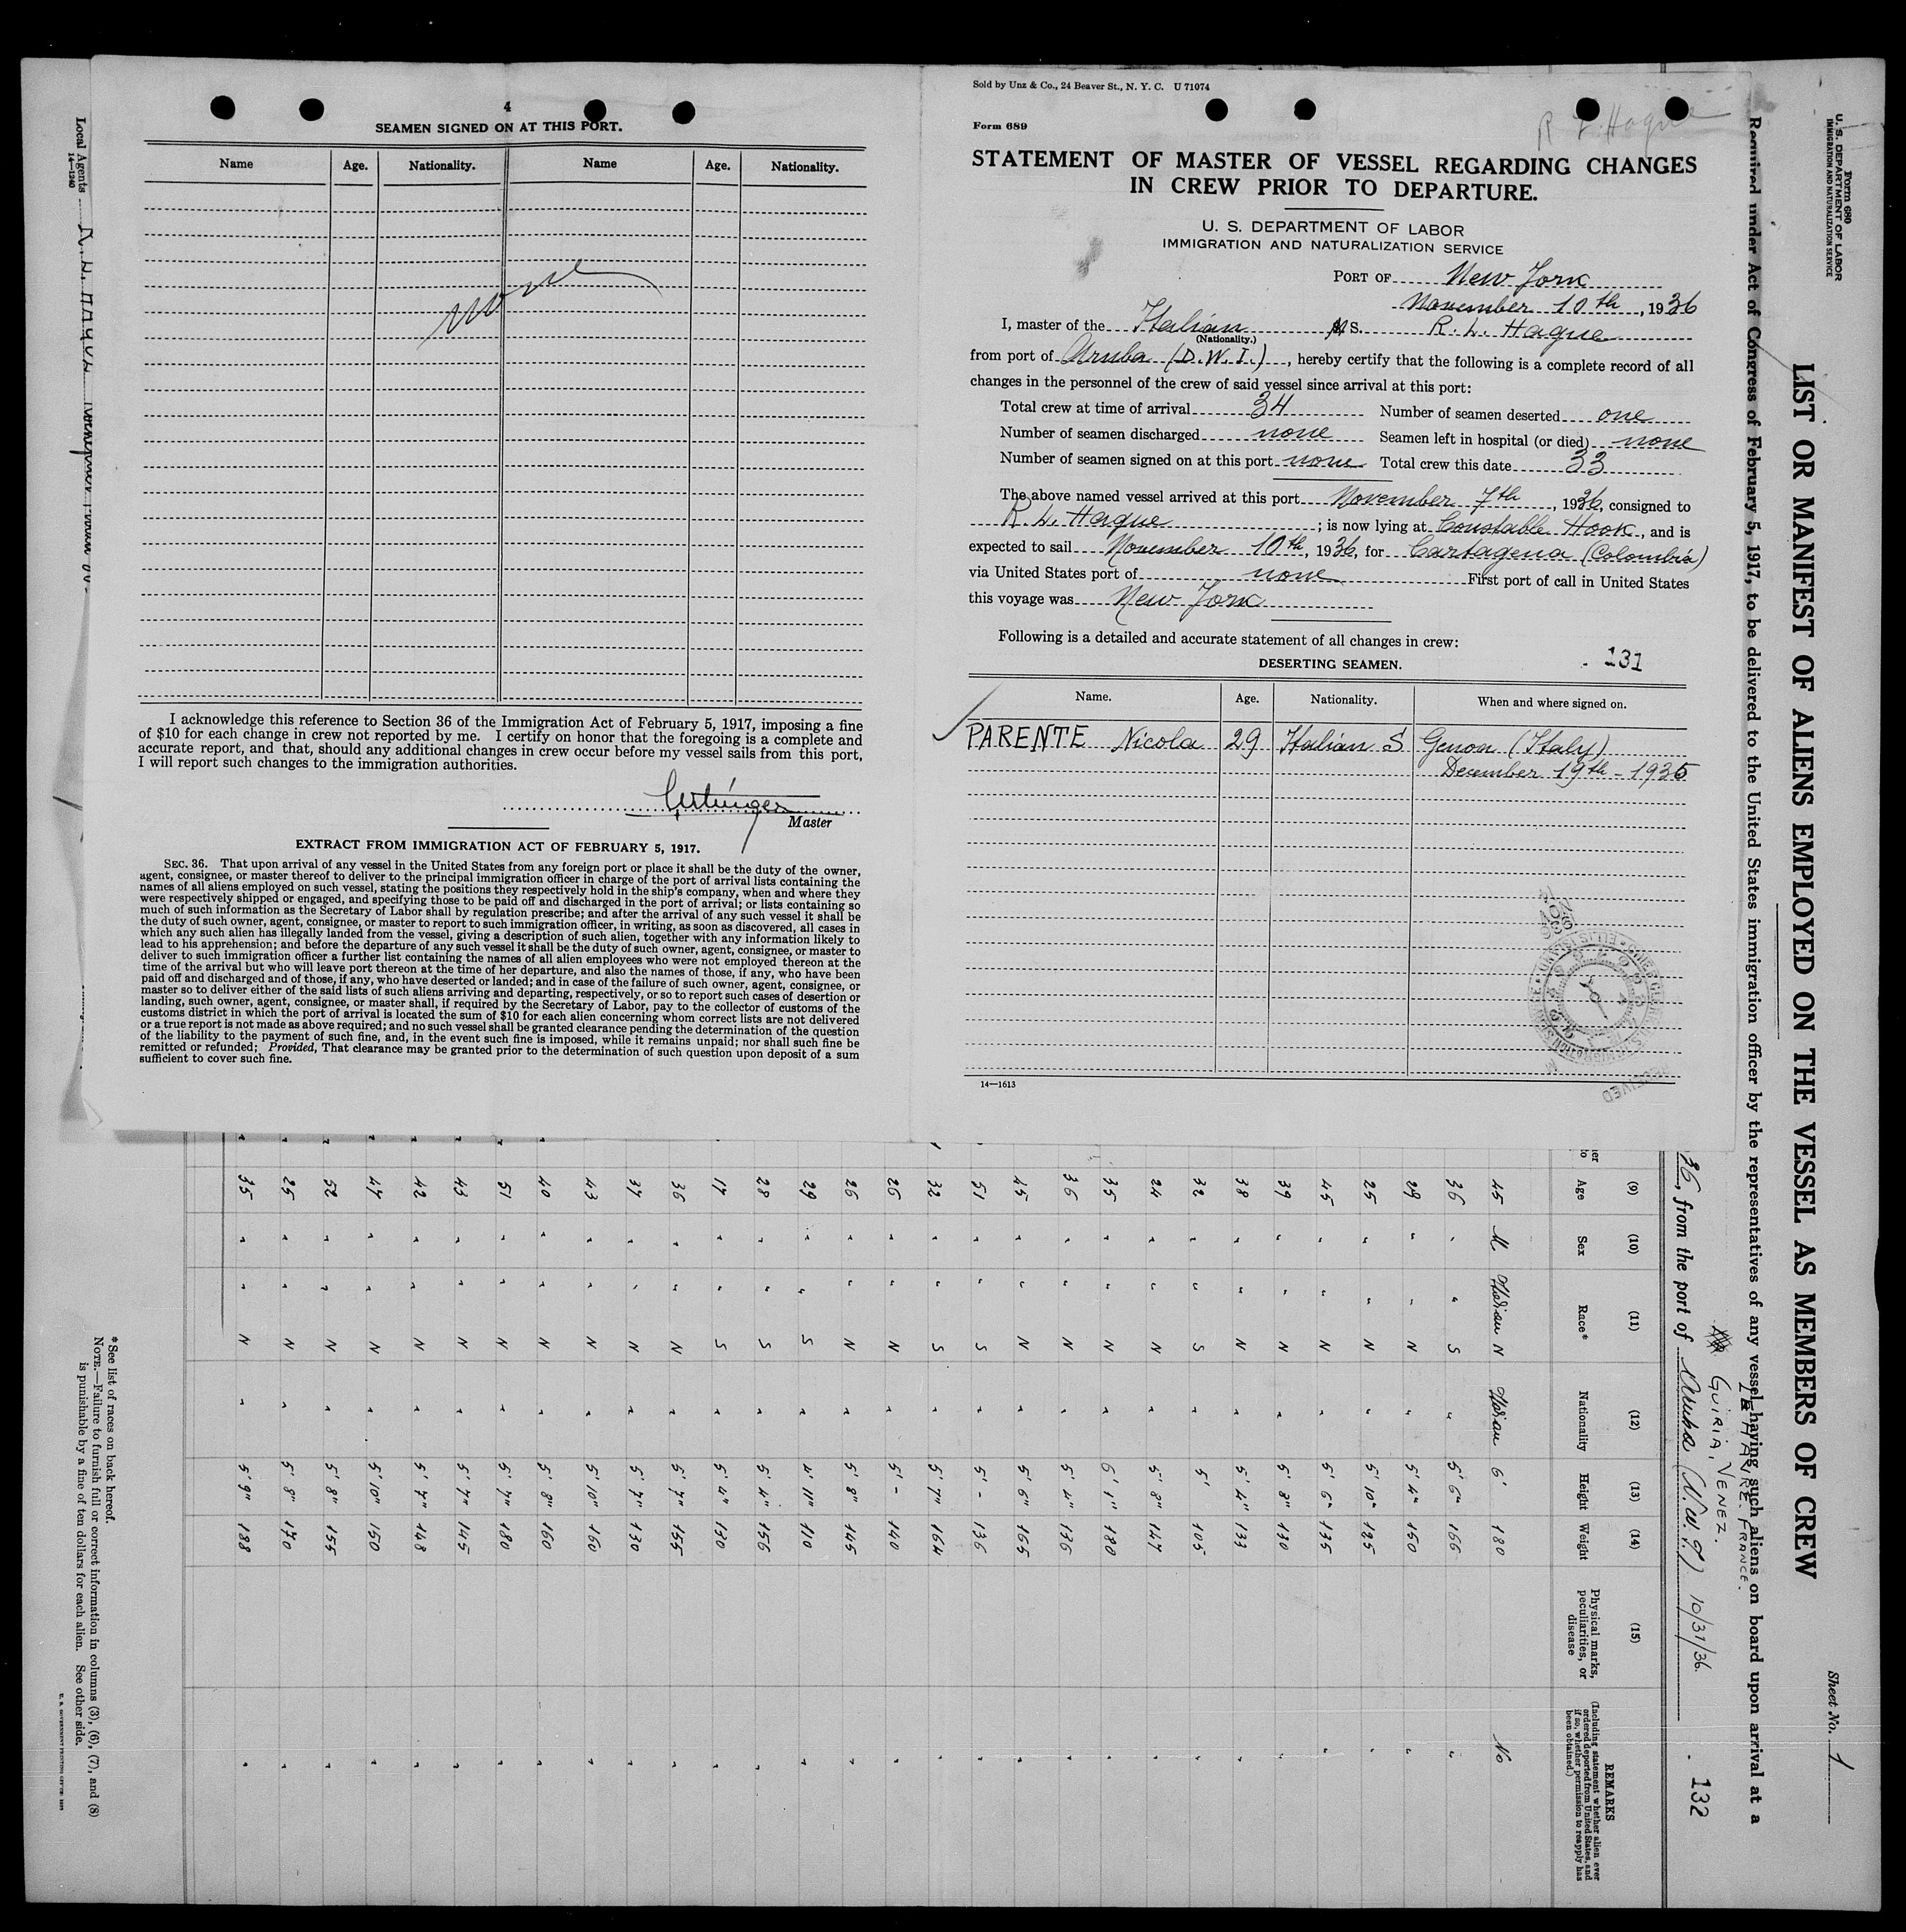 4
SEAMEN SIGNED ON AT THIS PORT.
Name Age. Nationality. Name Age. Nationality.
None
I acknowledge this reference to Section 36 of the Immigration Act of February 5, 1917, imposing a fine
of $10 for each change in crew not reported by me. I certify on honor that the foregoing is a complete and
accurate report, and that, should any additional changes in crew occur before my vessel sails from this port,
I will report such changes to the immigration authorities.
Master
EXTRACT FROM IMMIGRATION ACT OF FEBRUARY 5, 1917.
SEC. 36. That upon arrival of any vessel in the United States from any foreign port or place it shall be the duty of the owner,
agent, consignee, or master thereof to deliver to the principal immigration officer in charge of the port of arrival lists containing the
names of all aliens employed on such vessel, stating the positions they respectively hold in the ship's company, when and where they
were respectively shipped or engaged, and specifying those to be paid off and discharged in the port of arrival; or lists containing so
much of such information as the Secretary of Labor shall by regulation prescribe; and after the arrival of any such vessel it shall be
the duty of such owner, agent, consignee, or master to report to such immigration officer, in writing, as soon as discovered, all cases in
which any such alien has illegally landed from the vessel, giving a description of such alien, together with any information likely to
lead to his apprehension; and before the departure of any such vessel it shall be the duty of such owner, agent, consignee, or master to
deliver to such immigration officer a further list containing the names of all alien employees who were not employed thereon at the
time of the arrival but who will leave port thereon at the time of her departure, and also the names of those, if any, who have been
paid off and discharged and of those, if any, who have deserted or landed; and in case of the failure of such owner, agent, consignee, or
master so to deliver either of the said lists of such aliens arriving and departing, respectively, or so to report such cases of desertion or
landing, such owner, agent, consignee, or master shall, if required by the Secretary of Labor, pay to the collector of customs of the
customs district in which the port of arrival is located the sum of $10 for each alien concerning whom correct lists are not delivered
or a true report is not made as above required; and no such vessel shall be granted clearance pending the determination of the question
of the liability to the payment of such fine, and, in the event such fine is imposed, while it remains unpaid; nor shall such fine be
remitted or refunded; Provided, That clearance may be granted prior to the determination of such question upon deposit of a sum
sufficient to cover such fine.
Sold by Unz & Co., 24 Beaver St., N. Y. C. U 71074
R L Hague
Form 689
STATEMENT OF MASTER OF VESSEL REGARDING CHANGES
IN CREW PRIOR TO DEPARTURE.
U. S. DEPARTMENT OF LABOR
IMMIGRATION AND NATURALIZATION SERVICE
PORT OF New York
November 10th, 1936
I, master of the Italian M S. R. L. Hague
(Nationality.)
from port of Aruba (D.W.I.), hereby certify that the following is a complete record of all
changes in the personnel of the crew of said vessel since arrival at this port:
Total crew at time of arrival 34 Number of seamen deserted one
Number of seamen discharged none Seamen left in hospital (or died) none
Number of seamen signed on at this port none Total crew this date 33
The above named vessel arrived at this port November 7th, 1936, consigned to
R. L. Hague; is now lying at Constable Hook, and is
expected to sail November 10th, 1936, for Cartagena (Colombia)
via United States port of none First port of call in United States
this voyage was New York
Following is a detailed and accurate statement of all changes in crew:
DESERTING SEAMEN.
131
Name. Age. Nationality. When and where signed on.
PARENTE Nicola 29 Italian S Genoa (Italy)
December 19th - 1935
RECEIVED
14—1613
Form 680
U. S. DEPARTMENT OF LABOR
IMMIGRATION AND NATURALIZATION SERVICE
Sheet No. 1
LIST OR MANIFEST OF ALIENS EMPLOYED ON THE VESSEL AS MEMBERS OF CREW
Required under Act of Congress of February 5, 1917, to be delivered to the United States immigration officer by the representatives of any vessel having such aliens on board upon arrival at a
LE HAVRE. FRANCE.
GUIRIA, VENEZ.
36, from the port of Aruba (D.W.I.) 10/31/36.
132
(9) (10) (11) (12) (13) (14) (15)
Age Sex Race* Nationality Height Weight Physical marks, peculiarities, or disease REMARKS
(Including statement whether alien ever ordered deported from United States, and if so, whether permission to reapply has been obtained.)
45 M Italian N Italian 6' 180 No
36 " " S " 5' 6" 166 "
29 " " N " 5' 4" 150 "
25 " " N " 5' 10" 125 "
45 " " N " 5' 6" 135 "
39 " " N " 5' 8" 130 "
38 " " N " 5' 4" 133 "
32 " " S " 5' 105 "
24 " " N " 5' 8" 147 "
35 " " N " 6' 1" 180 "
36 " " N " 5' 4" 136 "
45 " " N " 5' 6" 165 "
51 " " S " 5' - 136 "
32 " " S " 5' 7" 164 "
26 " " N " 5' - 140 "
26 " " N " 5' 8" 145 "
29 " " S " 4' 11" 110 "
28 " " S " 5' 4" 156 "
17 " " S " 5' 4" 130 "
36 " " N " 5' 7" 155 "
37 " " N " 5' 7" 130 "
43 " " N " 5' 10" 160 "
40 " " N " 5' 8" 160 "
51 " " N " 5' 7" 180 "
43 " " N " 5' 7" 145 "
42 " " N " 5' 7" 148 "
47 " " N " 5' 10" 150 "
52 " " N " 5' 8" 155 "
25 " " N " 5' 8" 170 "
35 " " N " 5' 9" 188 "
*See list of races on back hereof.
NOTE.—Failure to furnish full or correct information in columns (3), (6), (7), and (8)
is punishable by a fine of ten dollars for each alien. See other side.
U. S. GOVERNMENT PRINTING OFFICE
Local Agents
14—1240